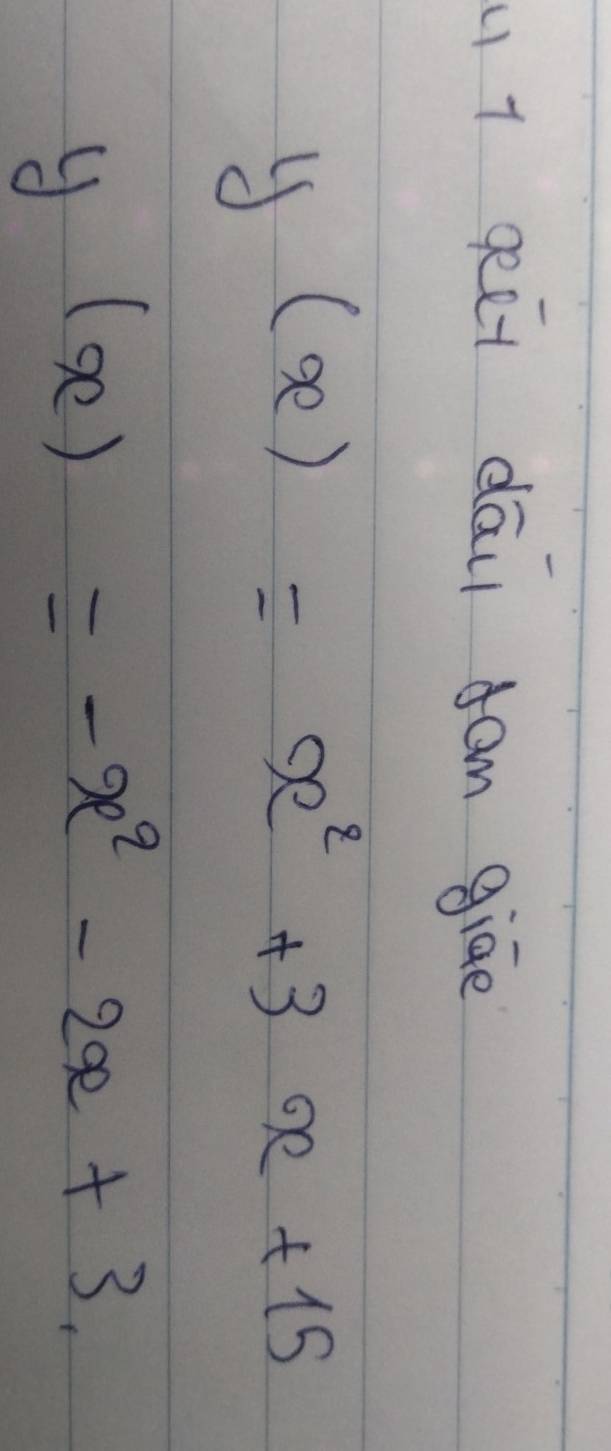 1 xét dấu tam giác
y (x) = x² + 3 x + 15
y (x) = - x² - 2x + 3.